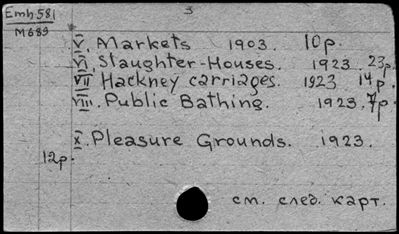 Emh 581
3
M689
V. Markets 1903. 10p.
VI. Slaughter-Houses. 1923. 23p.
VII Hackney carriages. 1923 14p.
VIII. Public Bathing. 1923. 7p.
X. Pleasure Grounds. 1923.
12p.
см. след. карт.